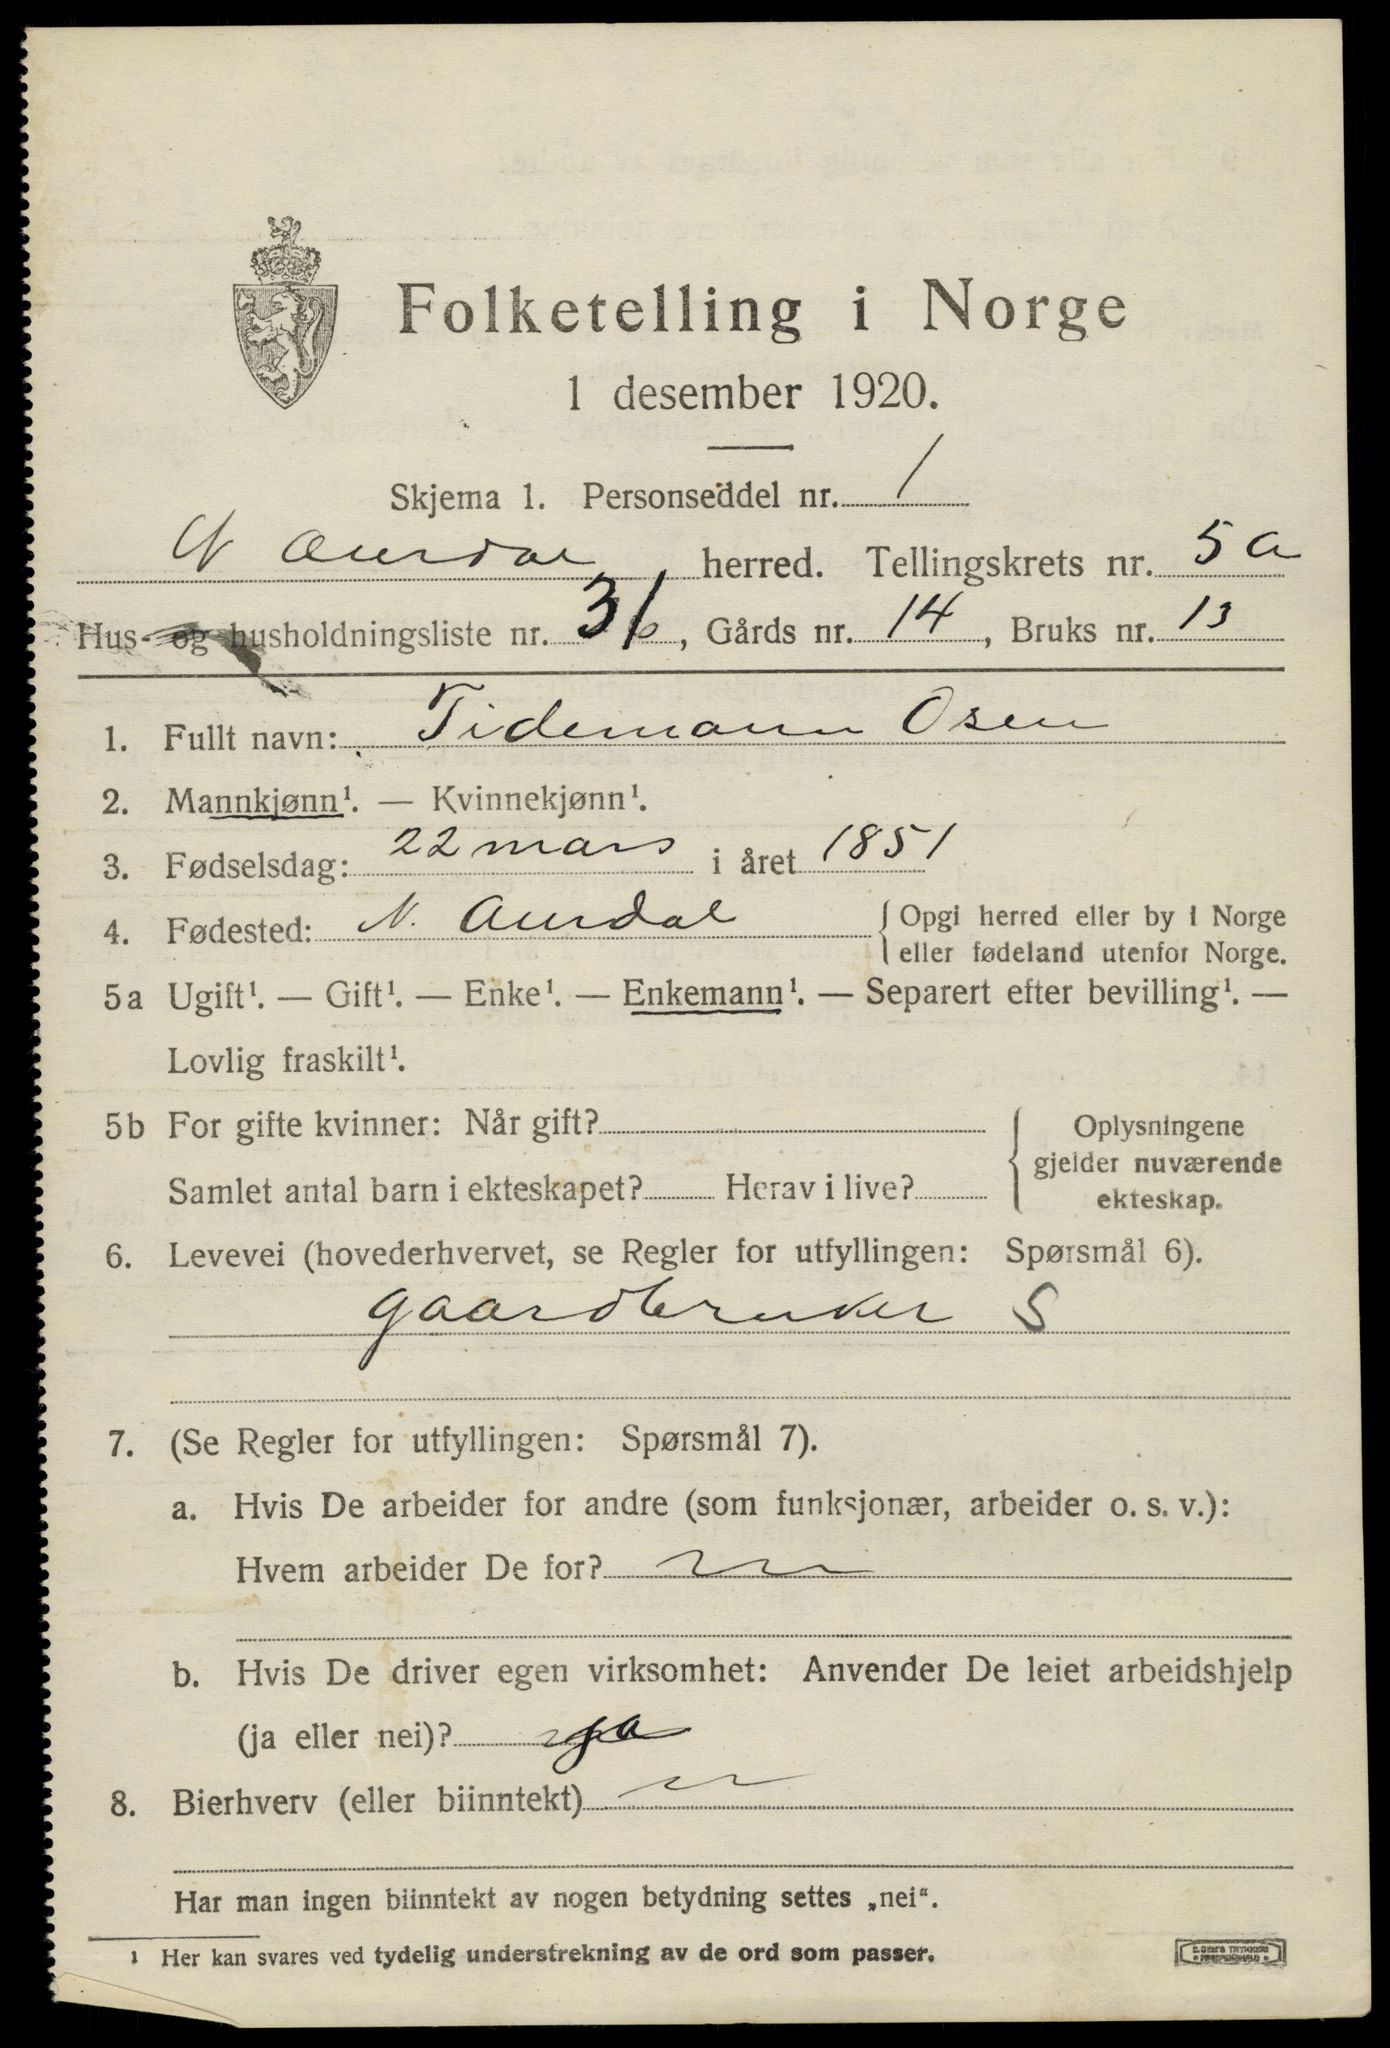 Folketelling i Norge
1 desember 1920.
Skjema 1. Personseddel nr. 1
N Aurdal herred. Tellingskrets nr. 5a
Hus- og husholdningsliste nr. 31, Gårds nr. 14, Bruks nr. 13
1. Fullt navn: Tidemann Osen
2. Mannkjønn¹. — Kvinnekjønn¹.
3. Fødselsdag: 22 mars i året 1851
4. Fødested: N. Aurdal { Opgi herred eller by i Norge
eller fødeland utenfor Norge.
5a Ugift¹. — Gift¹. — Enke¹. — Enkemann¹. — Separert efter bevilling¹. —
Lovlig fraskilt¹.
5b For gifte kvinner: Når gift?
Samlet antal barn i ekteskapet? Herav i live?
{ Oplysningene
gjelder nuværende
ekteskap.
6. Levevei (hovederhvervet, se Regler for utfyllingen: Spørsmål 6).
gaardbruker S
7. (Se Regler for utfyllingen: Spørsmål 7).
a. Hvis De arbeider for andre (som funksjonær, arbeider o. s. v.):
Hvem arbeider De for?
b. Hvis De driver egen virksomhet: Anvender De leiet arbeidshjelp
(ja eller nei)? ja
8. Bierhverv (eller biinntekt)
Har man ingen biinntekt av nogen betydning settes „nei“.
¹ Her kan svares ved tydelig understrekning av de ord som passer.